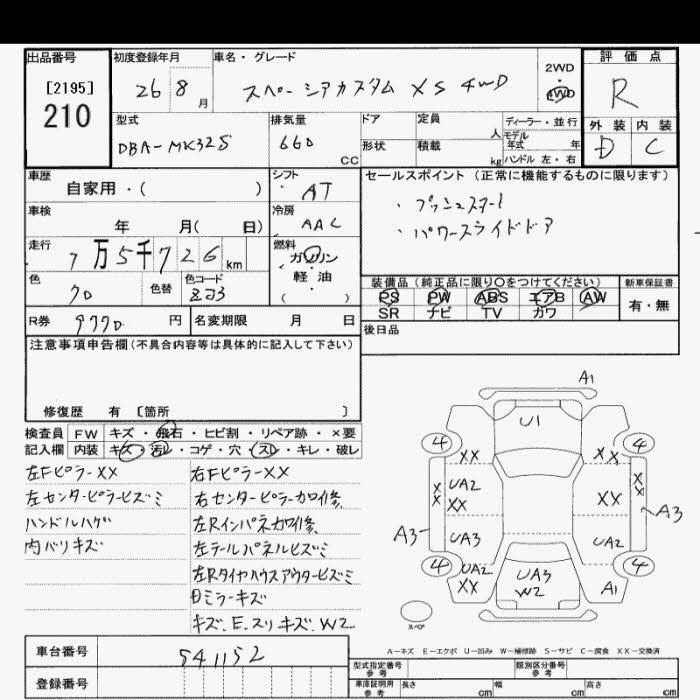 出品番号
[2195]
210
初度登録年月
26 8 月
車名・グレード
スペーシアカスタム XS 4WD
2WD
・
4WD
評価点
R
型式
DBA-MK32S
排気量
660 CC
ドア
形状
定員
人
積載
kg
ディーラー・並行
モデル年式 年
ハンドル 左・右
外装 内装
D C
車歴
自家用・( )
シフト
AT
冷房
AAC
セールスポイント (正常に機能するものに限ります)
・プッシュスタート
・パワースライドドア
車検
年 月( 日)
走行
7万5千726 km
燃料
ガソリン
軽油
( )
色
色替
色コード
ZJ3
装備品 (純正品に限り○をつけてください)
PS PW ABS エアB AW
SR ナビ TV カワ
新車保証書
有・無
R券 9770 円
名変期限 月 日
後日品
注意事項申告欄(不具合内容等は具体的に記入して下さい)
修復歴 有 [箇所 ]
検査員 FW キズ・飛石・ヒビ割・リペア跡・×要
記入欄 内装 キズ・汚レ・コゲ・穴・スレ・キレ・破レ
左Fピラーxx
左センターピラーヒズミ
ハンドルハゲ
内バリキズ
右Fピラーxx
右センターピラーカロイ修、
左Rインパネカロイ修、
左テールパネルヒズミ
左Rタイヤハウスアウターヒズミ
Dミラーキズ
キズ、E、スリキズ、W2
A1
U1
4 4
XX XX
UA2
XX XX
XX XX
A3 A3
UA3 UA2
4 4
UA2
XX
UA3
W2
A1
スペア
A-キズ E-エクボ U-凹み W-補修跡 S-サビ C-腐食 XX-交換済
車台番号 541152
登録番号
型式指定番号
参考
類別区分番号
参考
車庫証明用
参考
長さ cm
幅 cm
高さ cm